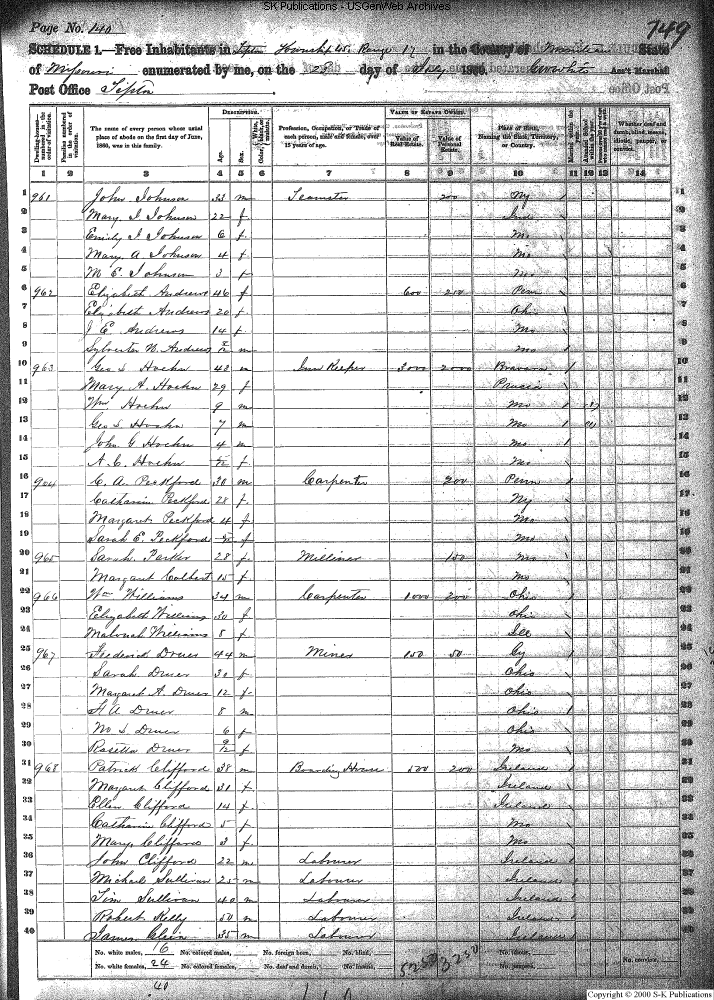 SK Publications - USGenWeb Archives
Page No. 140
749
SCHEDULE 1.—Free Inhabitants in Tipton Township 45. Range 17 in the County of Moniteau State
of Missouri enumerated by me, on the 28 day of July 1860. Ass't Marshall
Post Office Tipton
DESCRIPTION. VALUE OF ESTATE OWNED.
Dwelling-houses—numbered in the order of visitation. Families numbered in the order of visitation. The name of every person whose usual place of abode on the first day of June, 1860, was in this family. Age. Sex. Color, White, black, or mulatto. Profession, Occupation, or Trade of each person, male and female, over 15 years of age. Value of Real Estate. Value of Personal Estate. Place of Birth, Naming the State, Territory, or Country. Whether deaf and dumb, blind, insane, idiotic, pauper, or convict.
1 2 3 4 5 6 7 8 9 10 11 12 13 14
1 961 John Johnson 33 m Teamster 200 Ny / 1
2 Mary J Johnson 22 f Ind 2
3 Emily J Johnson 6 f Mo 3
4 Mary A Johnson 4 f Mo 4
5 M E Johnson 3 f Mo 5
6 962 Elizabeth Andrews 46 f 600 200 Penn 6
7 Elizabeth Andrews 20 f Ohio 7
8 J E Andrews 14 f Mo 8
9 Sylvester N. Andrews m Mo / 9
10 963 Geo S Hoehn 48 m Inn Keeper 3000 2000 Bravaria / 10
11 Mary A. Hoehn 29 f Prussia 11
12 Wm Hoehn 9 m Mo / 12
13 Geo S. Hoehn 7 m Mo / 13
14 John G Hoehn 4 m Mo / 14
15 A. C. Hoehn f Mo 15
16 964 C. A. Peckford 30 m Carpenter 200 Penn 16
17 Catharine Peckford 28 f Ny 17
18 Margaret Peckford 4 f Mo 18
19 Sarah E. Peckford f Mo 19
20 965 Sarah Parker 28 f Milliner 150 Mo 20
21 Margaret Colbert 15 f Mo 21
22 966 Wm Williams 34 m Carpenter 1000 200 Ohio 22
23 Elizabeth Williams 30 f Ohio 23
24 Williams 8 f Ill 24
25 967 Frederick Druer 44 m Miner 150 50 Gy 25
26 Sarah Druer 30 f Ohio 26
27 Margaret A. Druer 12 f Ohio 27
28 H A Druer 8 m Ohio / 28
29 S Druer 6 f Ohio 29
30 Rosetta Druer 9/12 f Mo 30
31 968 Patrick Clifford 38 m Boarding House 500 200 Ireland 31
32 Margaret Clifford 31 f Ireland 32
33 Ellen Clifford 14 f Ireland 33
34 Catharine Clifford 5 f Mo 34
35 Mary Clifford 3 f Mo 35
36 John Clifford 22 m Labourer Ireland 36
37 Michael Sullivan 25 m Labourer Ireland 37
38 Tim Sullivan 40 m Labourer Ireland 38
39 Robert Kelly 50 m Labourer Ireland 39
40 James 35 m Labourer Ireland 40
No. white males, 16 No. colored males, No. foreign born, No. blind, 5250 3250 No. idiotic, No. convicts,
No. white females, 24 No. colored females, No. deaf and dumb, No. insane, No. paupers,
40
Copyright © 2000 S-K Publications